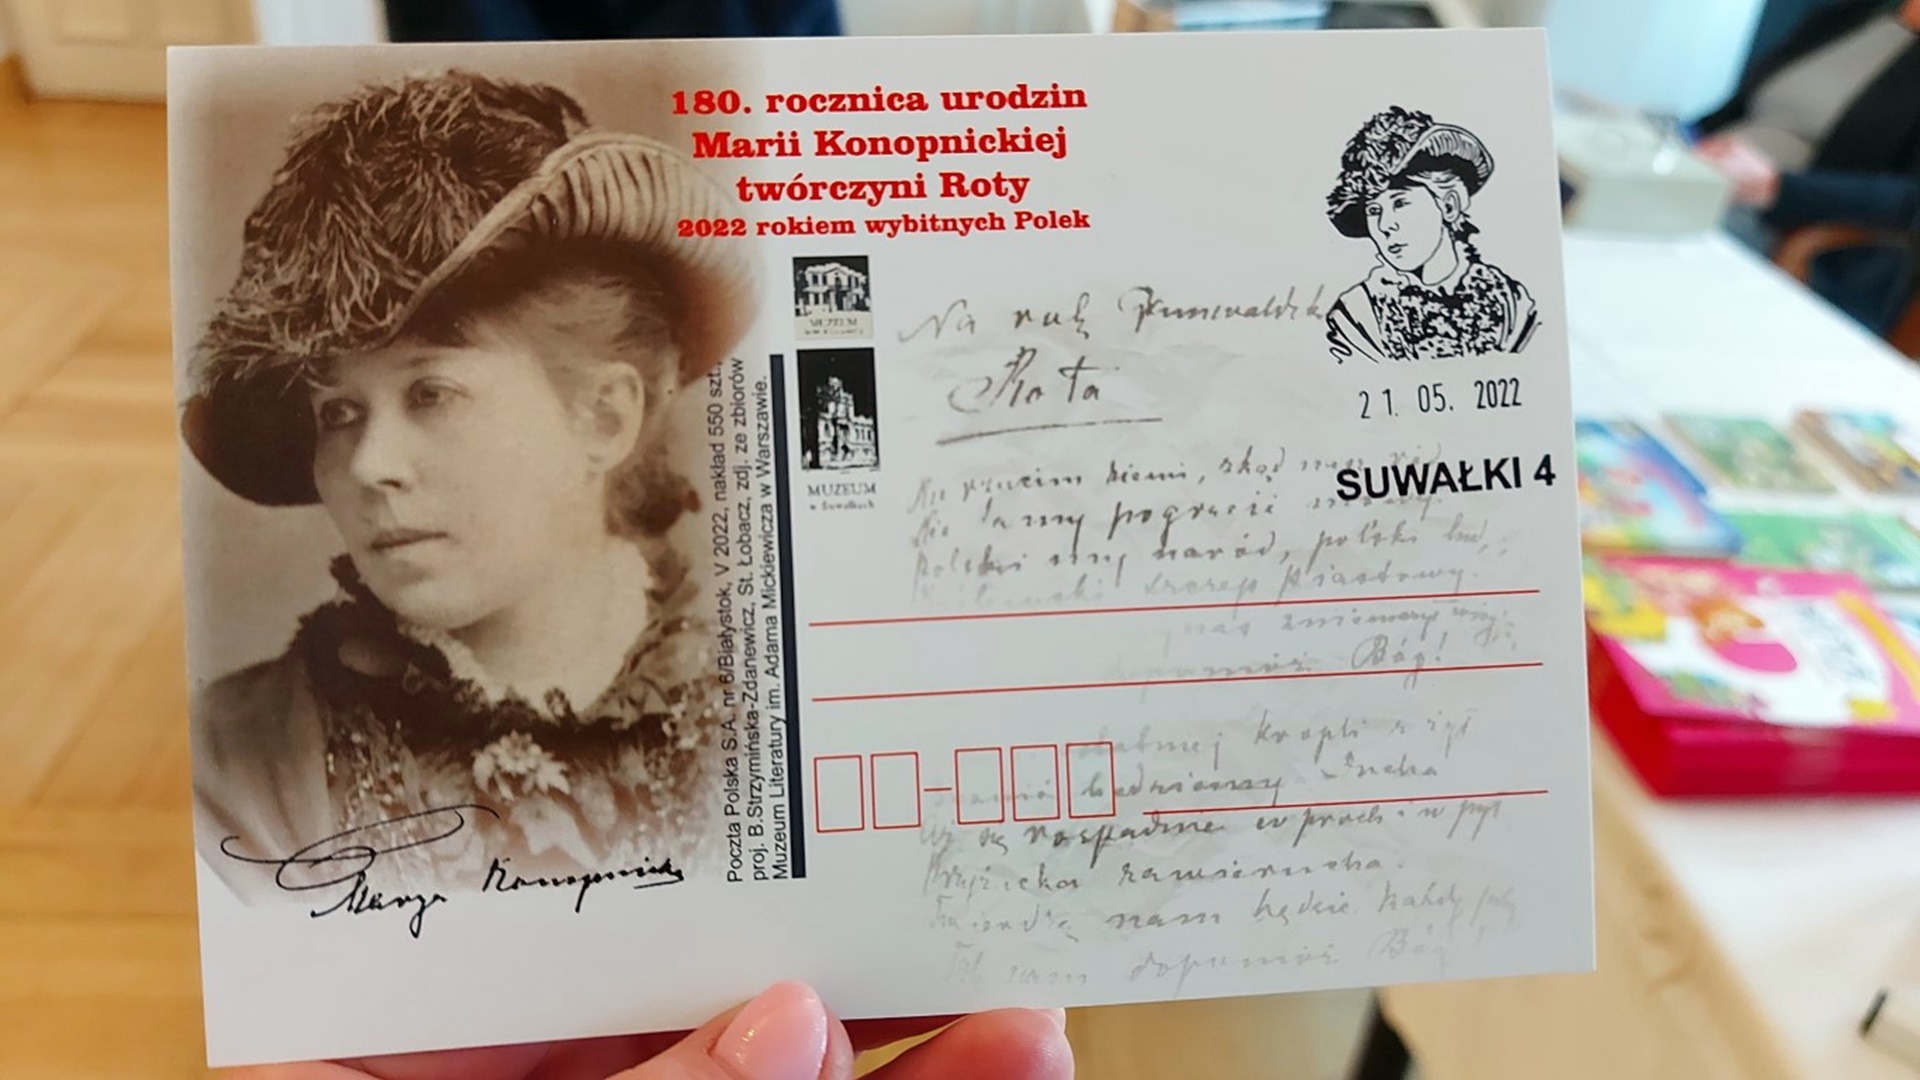 180. rocznica urodzin
Marii Konopnickiej
twórczyni Roty
2022 rokiem wybitnych Polek
MUZEUM
MUZEUM
w Suwałkach
Poczta Polska S.A. nr 6/Białystok, V 2022, nakład 550 szt.,
proj. B.Strzymińska-Zdanewicz, St. Łobacz, zdj. ze zbiorów
Muzeum Literatury im. Adama Mickiewicza w Warszawie.
21. 05. 2022
SUWAŁKI 4
Na
Rota
ziemi, skąd nasz
Nie damy pogrześć mowy.
Polski my naród, polski lud,
szczep Piastowy.
nas
Bóg!
kropli z żył
Ducha
Aż się rozpadnie w proch i w pył
Krzyżacka zawierucha.
nam będzie każdy próg
Tak nam dopomóż Bóg!
Marya Konopnicka